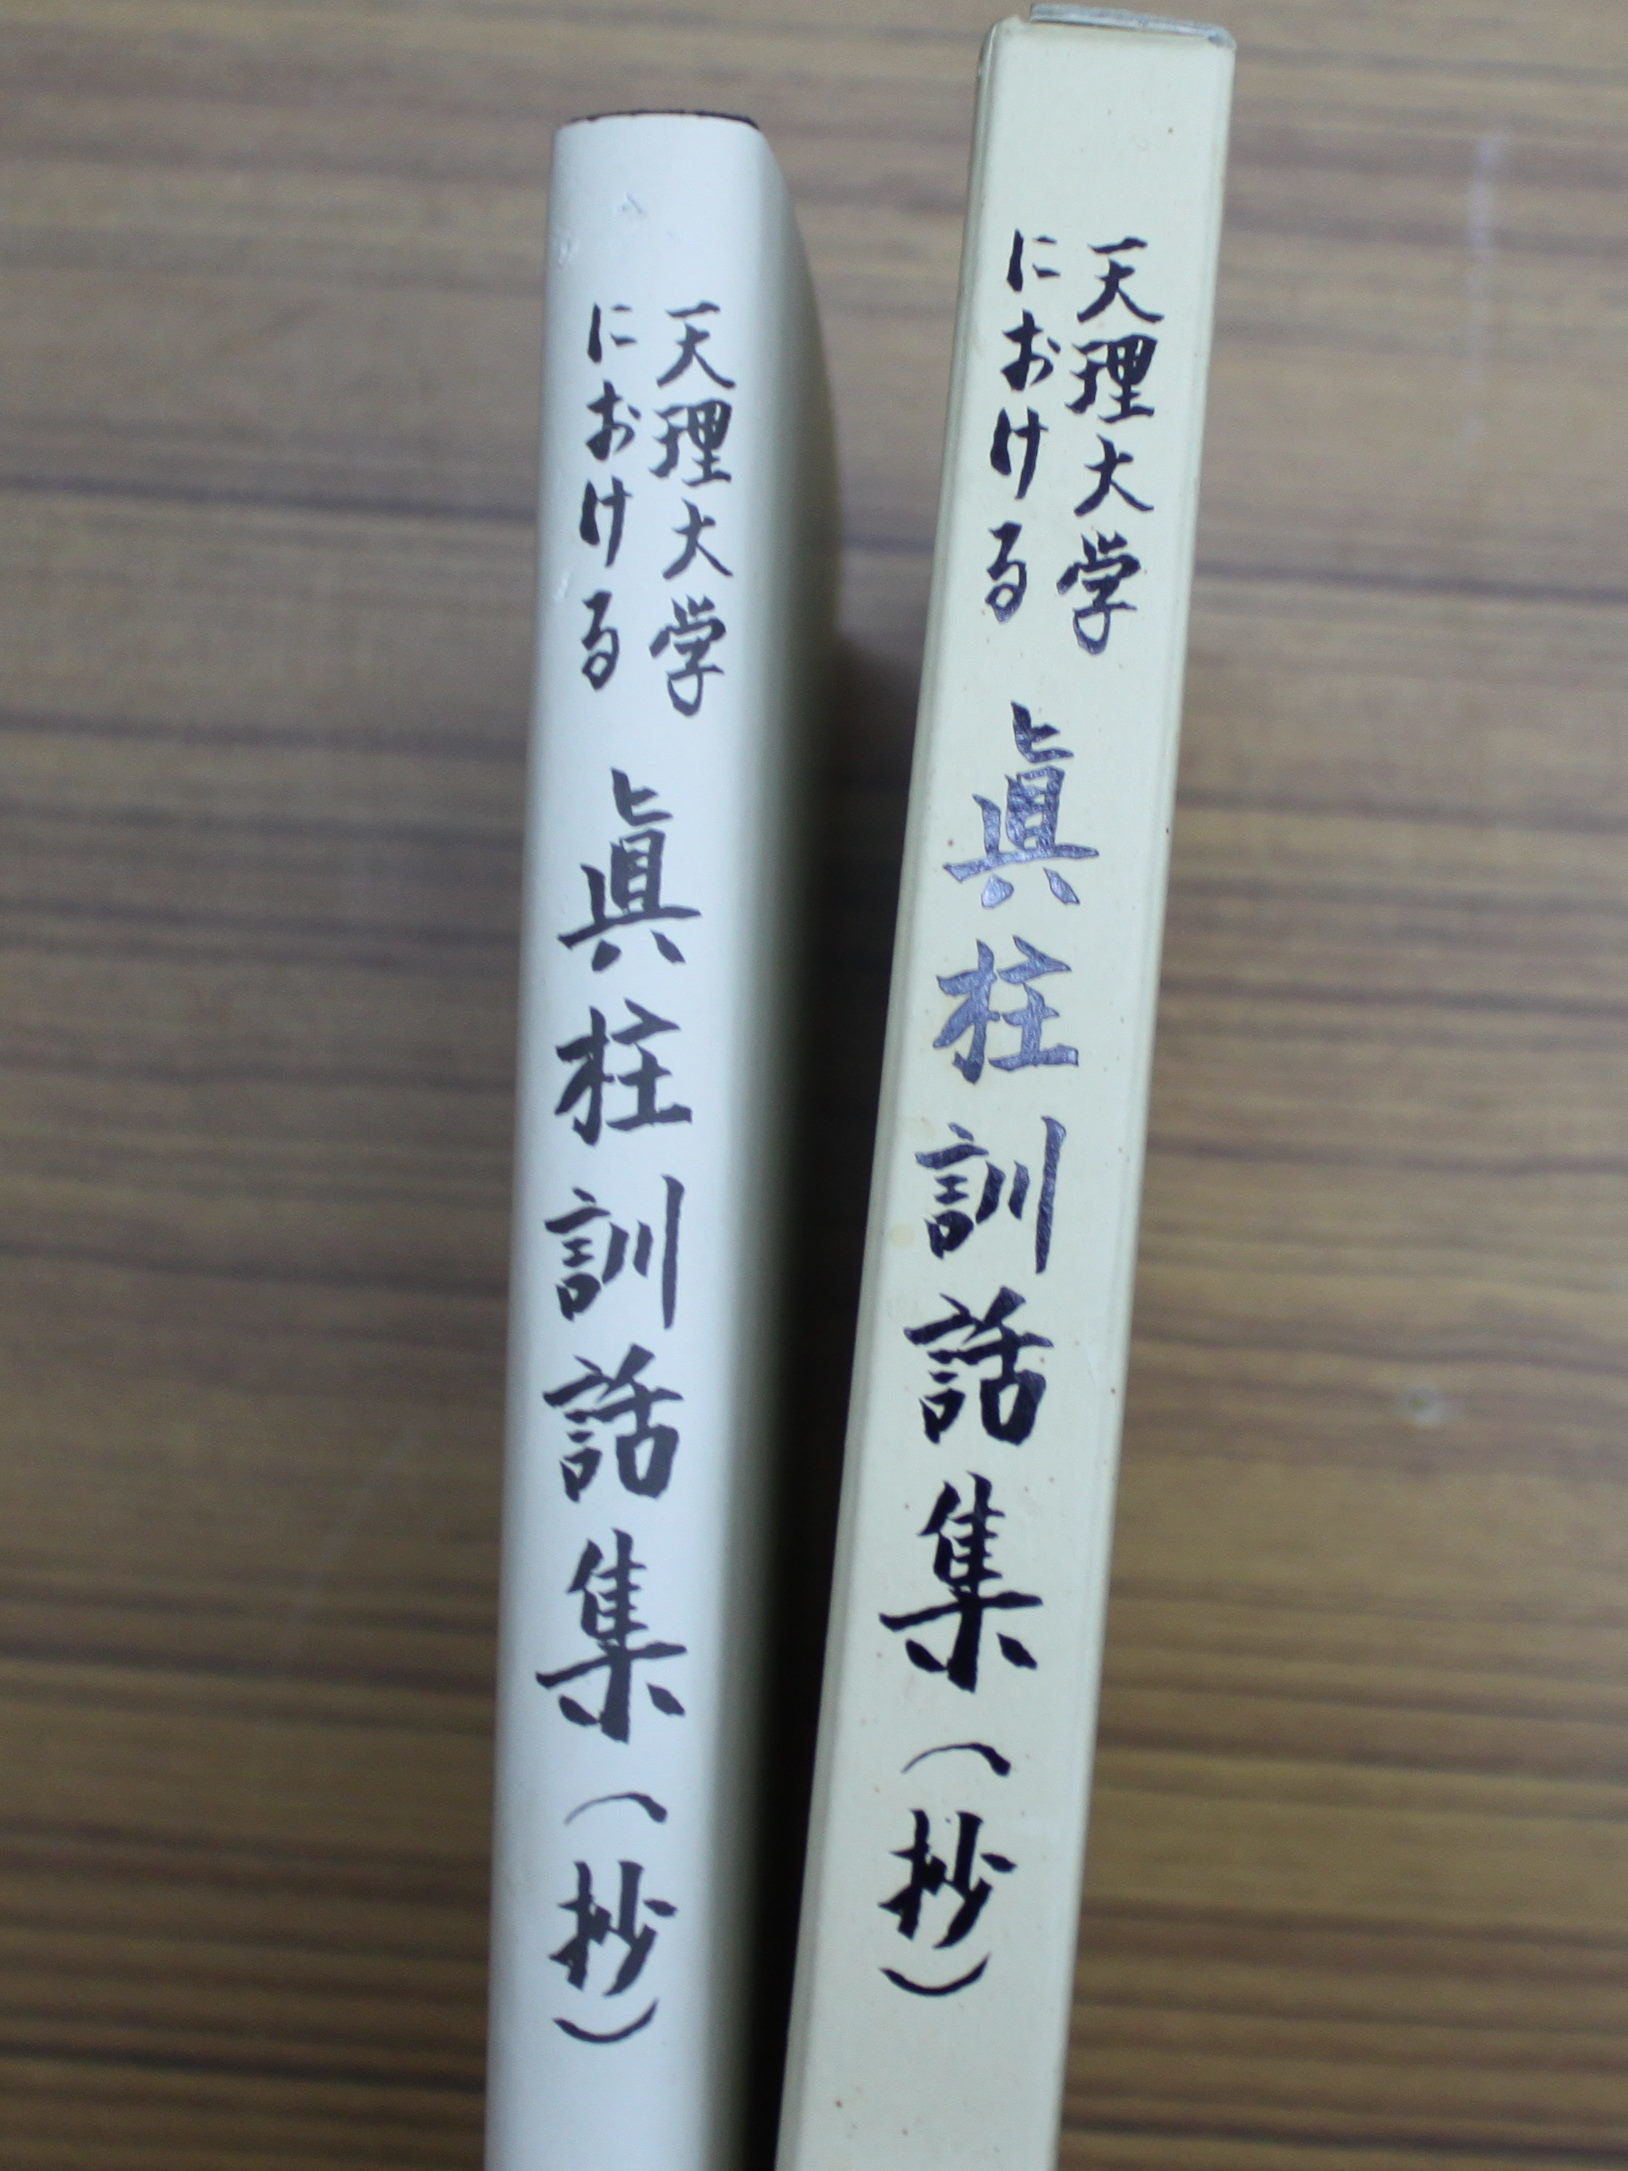 天理大学
における
眞柱訓話集(抄)
天理大学
における
眞柱訓話集(抄)